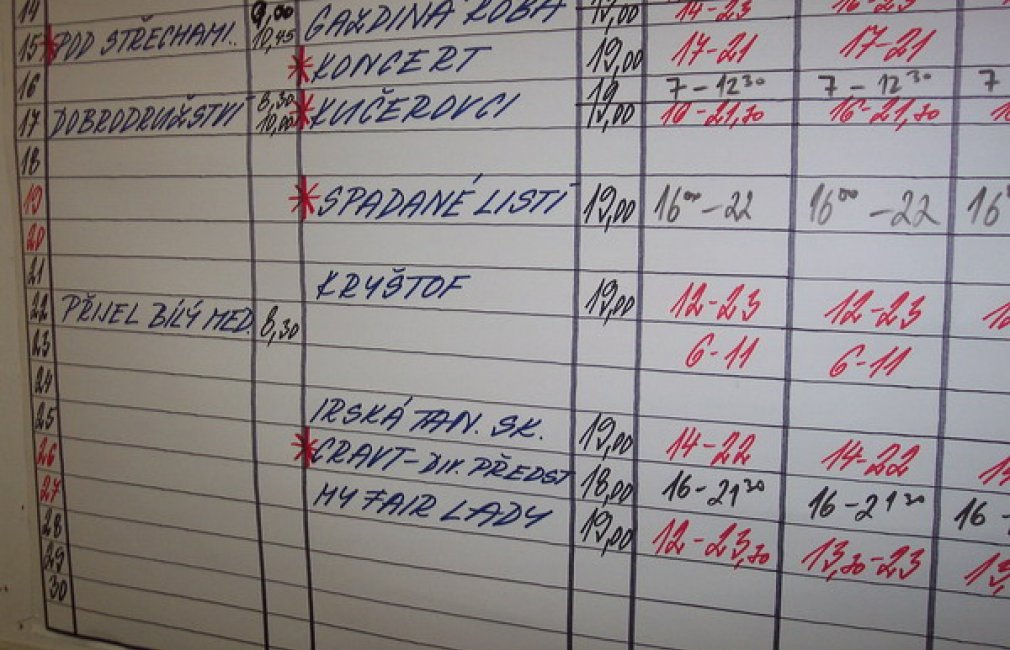 14 9,00 GAZDINA ROBA 19,00 14-23 16-23
15 * POD STŘECHAMI. 10,45 * KONCERT 19,00 17-21 17-21
16 19 7-12³⁰ 7-12³⁰ 7
17 DOBRODRUŽSTVÍ 8,30 10,00 * KUČEROVCI 19,00 16-21,30 16-21,30
18
19 * SPADANÉ LISTÍ 19,00 16⁰⁰-22 16⁰⁰-22 16
20
21 KRYŠTOF 19,00 12-23 12-23
22 PŘIJEL BÍLÝ MED. 8,30
23 6-11 6-11
24
25 IRSKÁ TAN. SK. 19,00 14-22 14-22
26 * CRAVT-DIV. PŘEDST 18,00 16-21³⁰ 16-21³⁰ 16-
27 MY FAIR LADY 19,00 12-23,30 13,30-23 13,
28
29
30